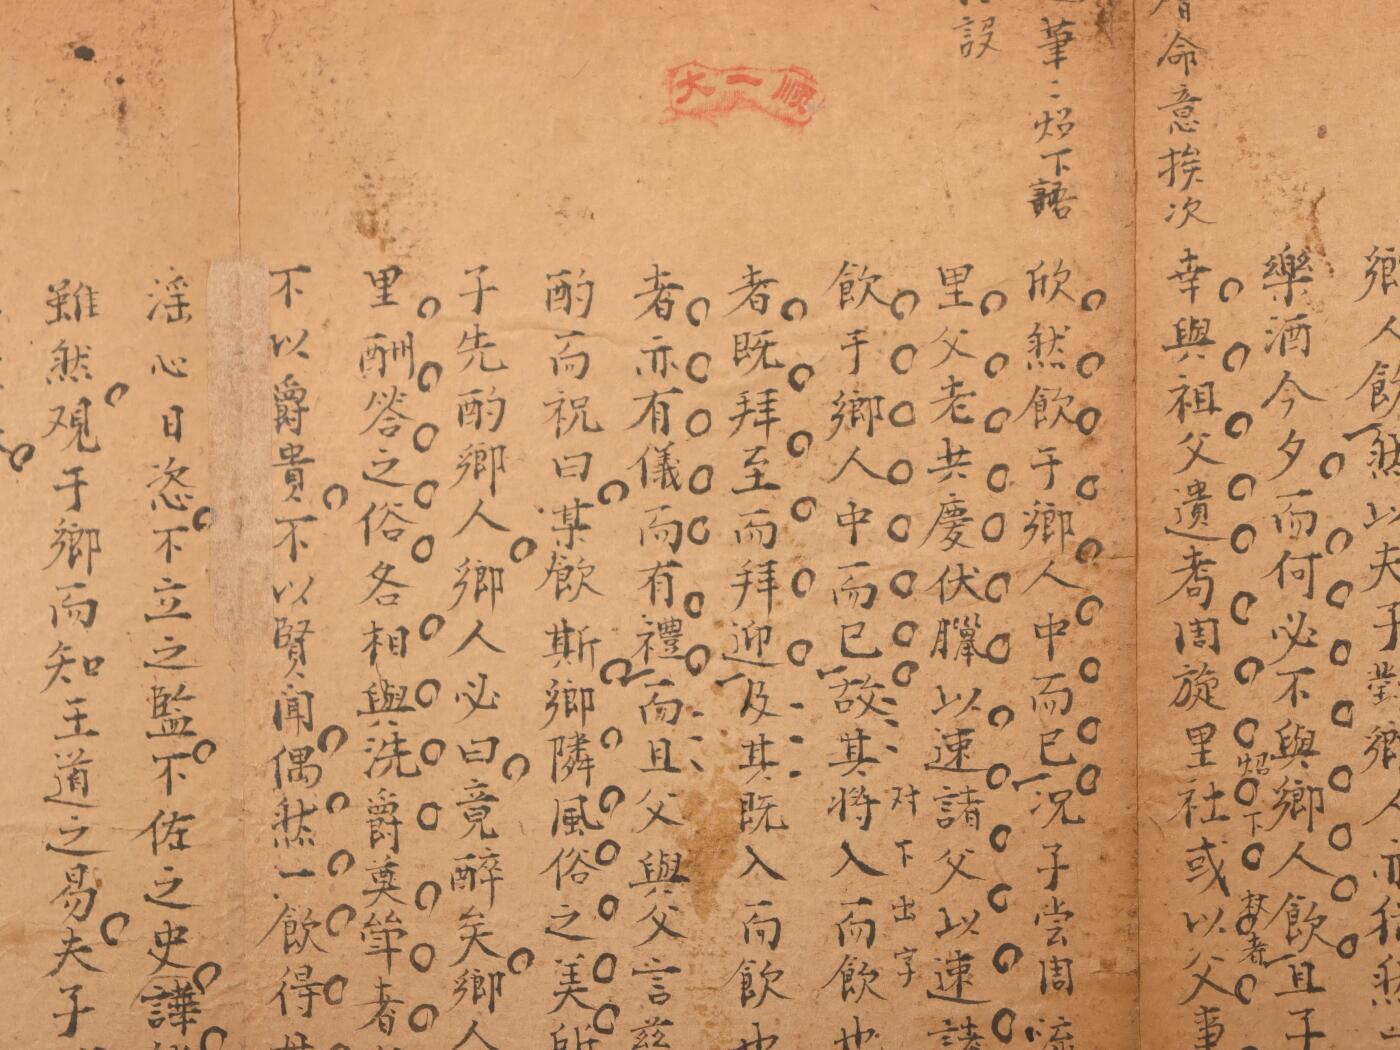 鄉人飲然以夫子對鄉人亦
樂酒今夕而何必不與鄉人飲且子
命意挨次
幸與祖父遺耇周旋里社或以父事
炤下
筆炤下語
欣然飲于鄉人中而已况子尝周
設
里父老共慶伏臘以速諸父以速諸
对下出字
飲于鄉人中而已故其將入而飲也
者既拜至而拜迎及其既入而飲也
者亦有儀而有禮而且父與父言兹
順一大
酌而祝曰某飲斯鄉隣風俗之美所
子先酌鄉人鄉人必曰竟醉矣鄉人
里酬答之俗各相與洗爵奠斝者
不以爵貴不以賢聞偶然一飲得
滛心日恣不立之監不佐之史譁
雖然观于鄉而知王道之易夫子